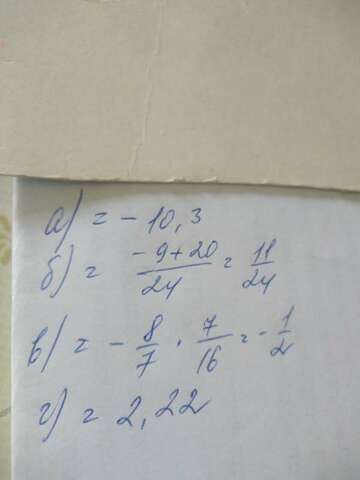 а) = - 10,3
б) = -9+20/24 = 11/24
в) = - 8/7 · 7/16 = - 1/2
г) = 2,22